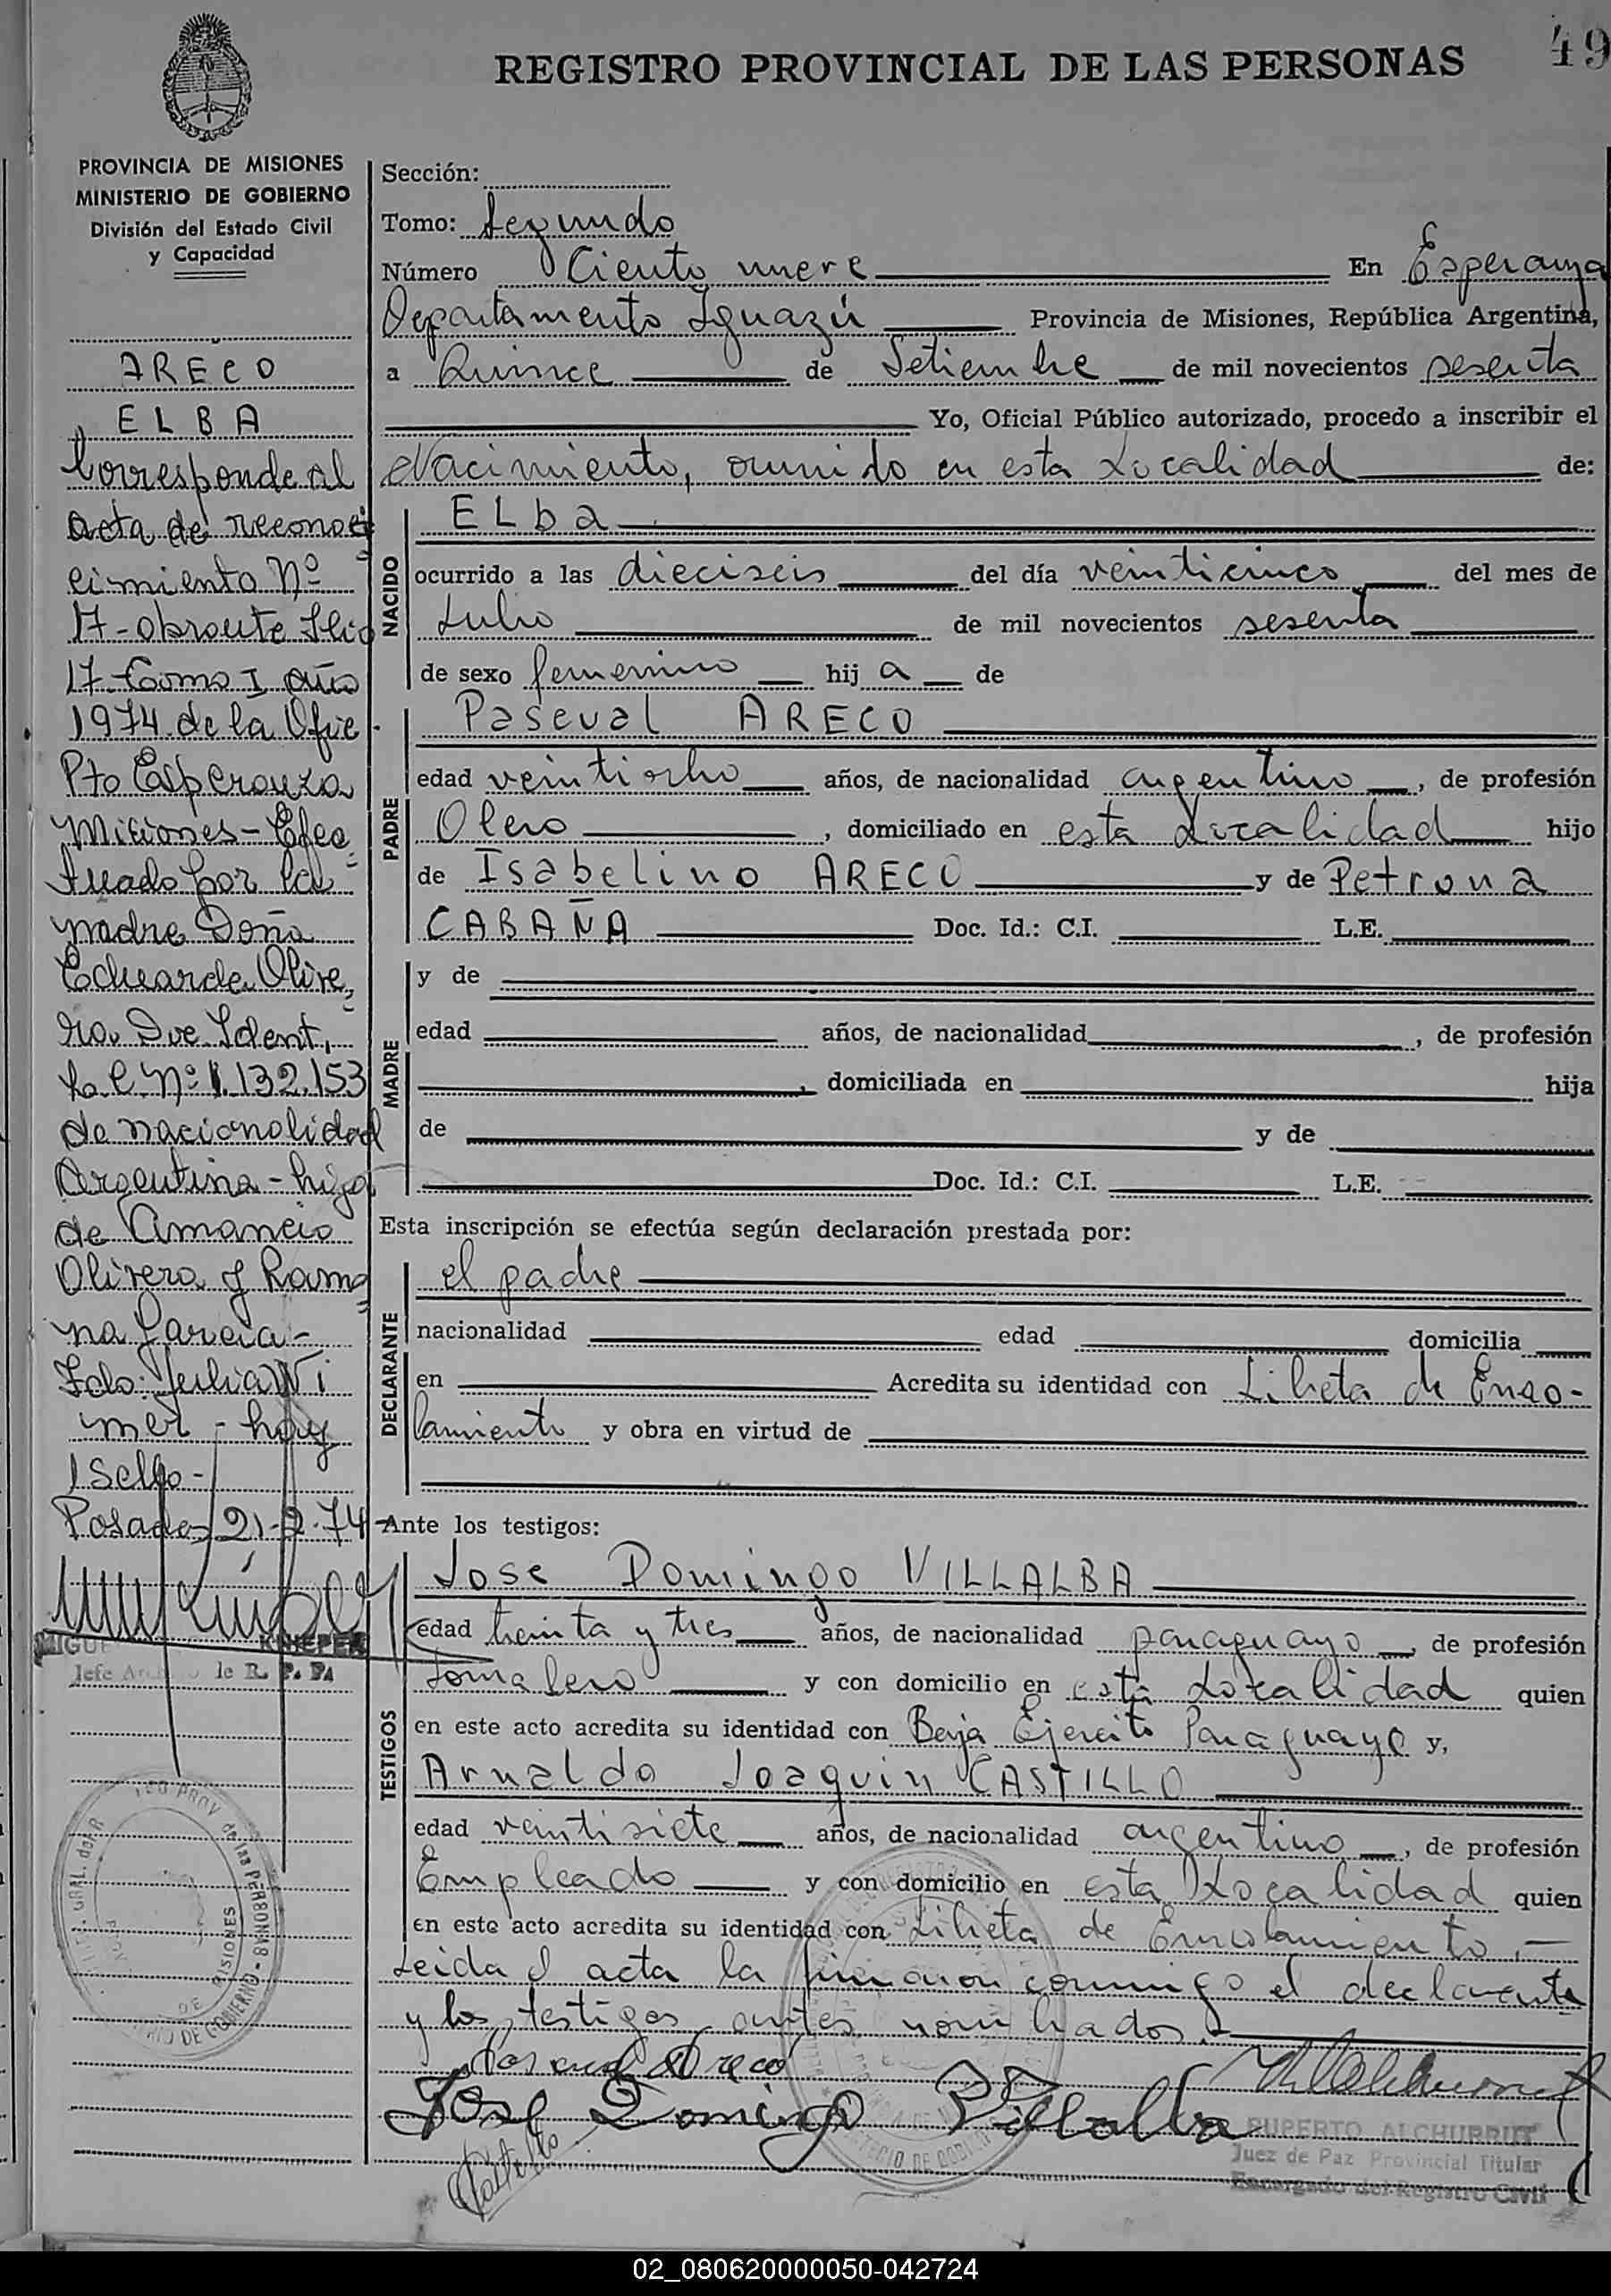 49
REGISTRO PROVINCIAL DE LAS PERSONAS
PROVINCIA DE MISIONES
MINISTERIO DE GOBIERNO
División del Estado Civil
y Capacidad
ARECO
ELBA
Corresponde al
acta de reconoci
cimiento Nº
17 - obrante
17 - Tomo I año
1974 de la Ofic.
Pto Esperanza
Misiones - Efec
tuado por la
madre Doña
Eduarda Olive
ra. Doc. Ident.
L.C. Nº 1.132.153
de nacionalidad
Argentina - hija
de Amancio
Olivera y Ramo
na Garcia -
Fdo: Julia Wi
mer - hay
1 sello -
Posadas 21-2-74
Jefe
de R. P. P.
Sección:
Tomo: Segundo
Número Ciento nueve En Esperanza
Departamento Iguazú Provincia de Misiones, República Argentina,
a Quince de Setiembre de mil novecientos sesenta
Yo, Oficial Público autorizado, procedo a inscribir el
Nacimiento, ocurrido en esta Localidad de:
NACIDO
ELba
ocurrido a las dieciseis del día veinticinco del mes de
Julio de mil novecientos sesenta
de sexo femenino hij a de
PADRE
Pascual ARECO
edad veintiocho años, de nacionalidad argentino, de profesión
Olero, domiciliado en esta Localidad hijo
de Isabelino ARECO y de Petrona
CABAÑA Doc. Id.: C.I. L.E.
MADRE
y de
edad años, de nacionalidad, de profesión
, domiciliada en hija
de y de
Doc. Id.: C.I. L.E.
Esta inscripción se efectúa según declaración prestada por:
DECLARANTE
el padre
nacionalidad edad domicilia
en Acredita su identidad con Libreta de Enro-
lamiento y obra en virtud de
Ante los testigos:
TESTIGOS
Jose Domingo VILLALBA
edad treinta y tres años, de nacionalidad paraguayo, de profesión
Jornalero y con domicilio en esta Localidad quien
en este acto acredita su identidad con Baja Ejercito Paraguayo y,
Arnaldo Joaquin CASTILLO
edad veintisiete años, de nacionalidad argentino, de profesión
Empleado y con domicilio en esta Localidad quien
en este acto acredita su identidad con Libreta de Enrolamiento.-
Leida el acta la firmaron conmigo el declarante
y los testigos antes nombrados.-
Pascual Areco
José Domingo Villalba
Castillo
RUPERTO ALCHURRUT
Juez de Paz Provincial Titular
Encargado del Registro Civil
02_080620000050-042724